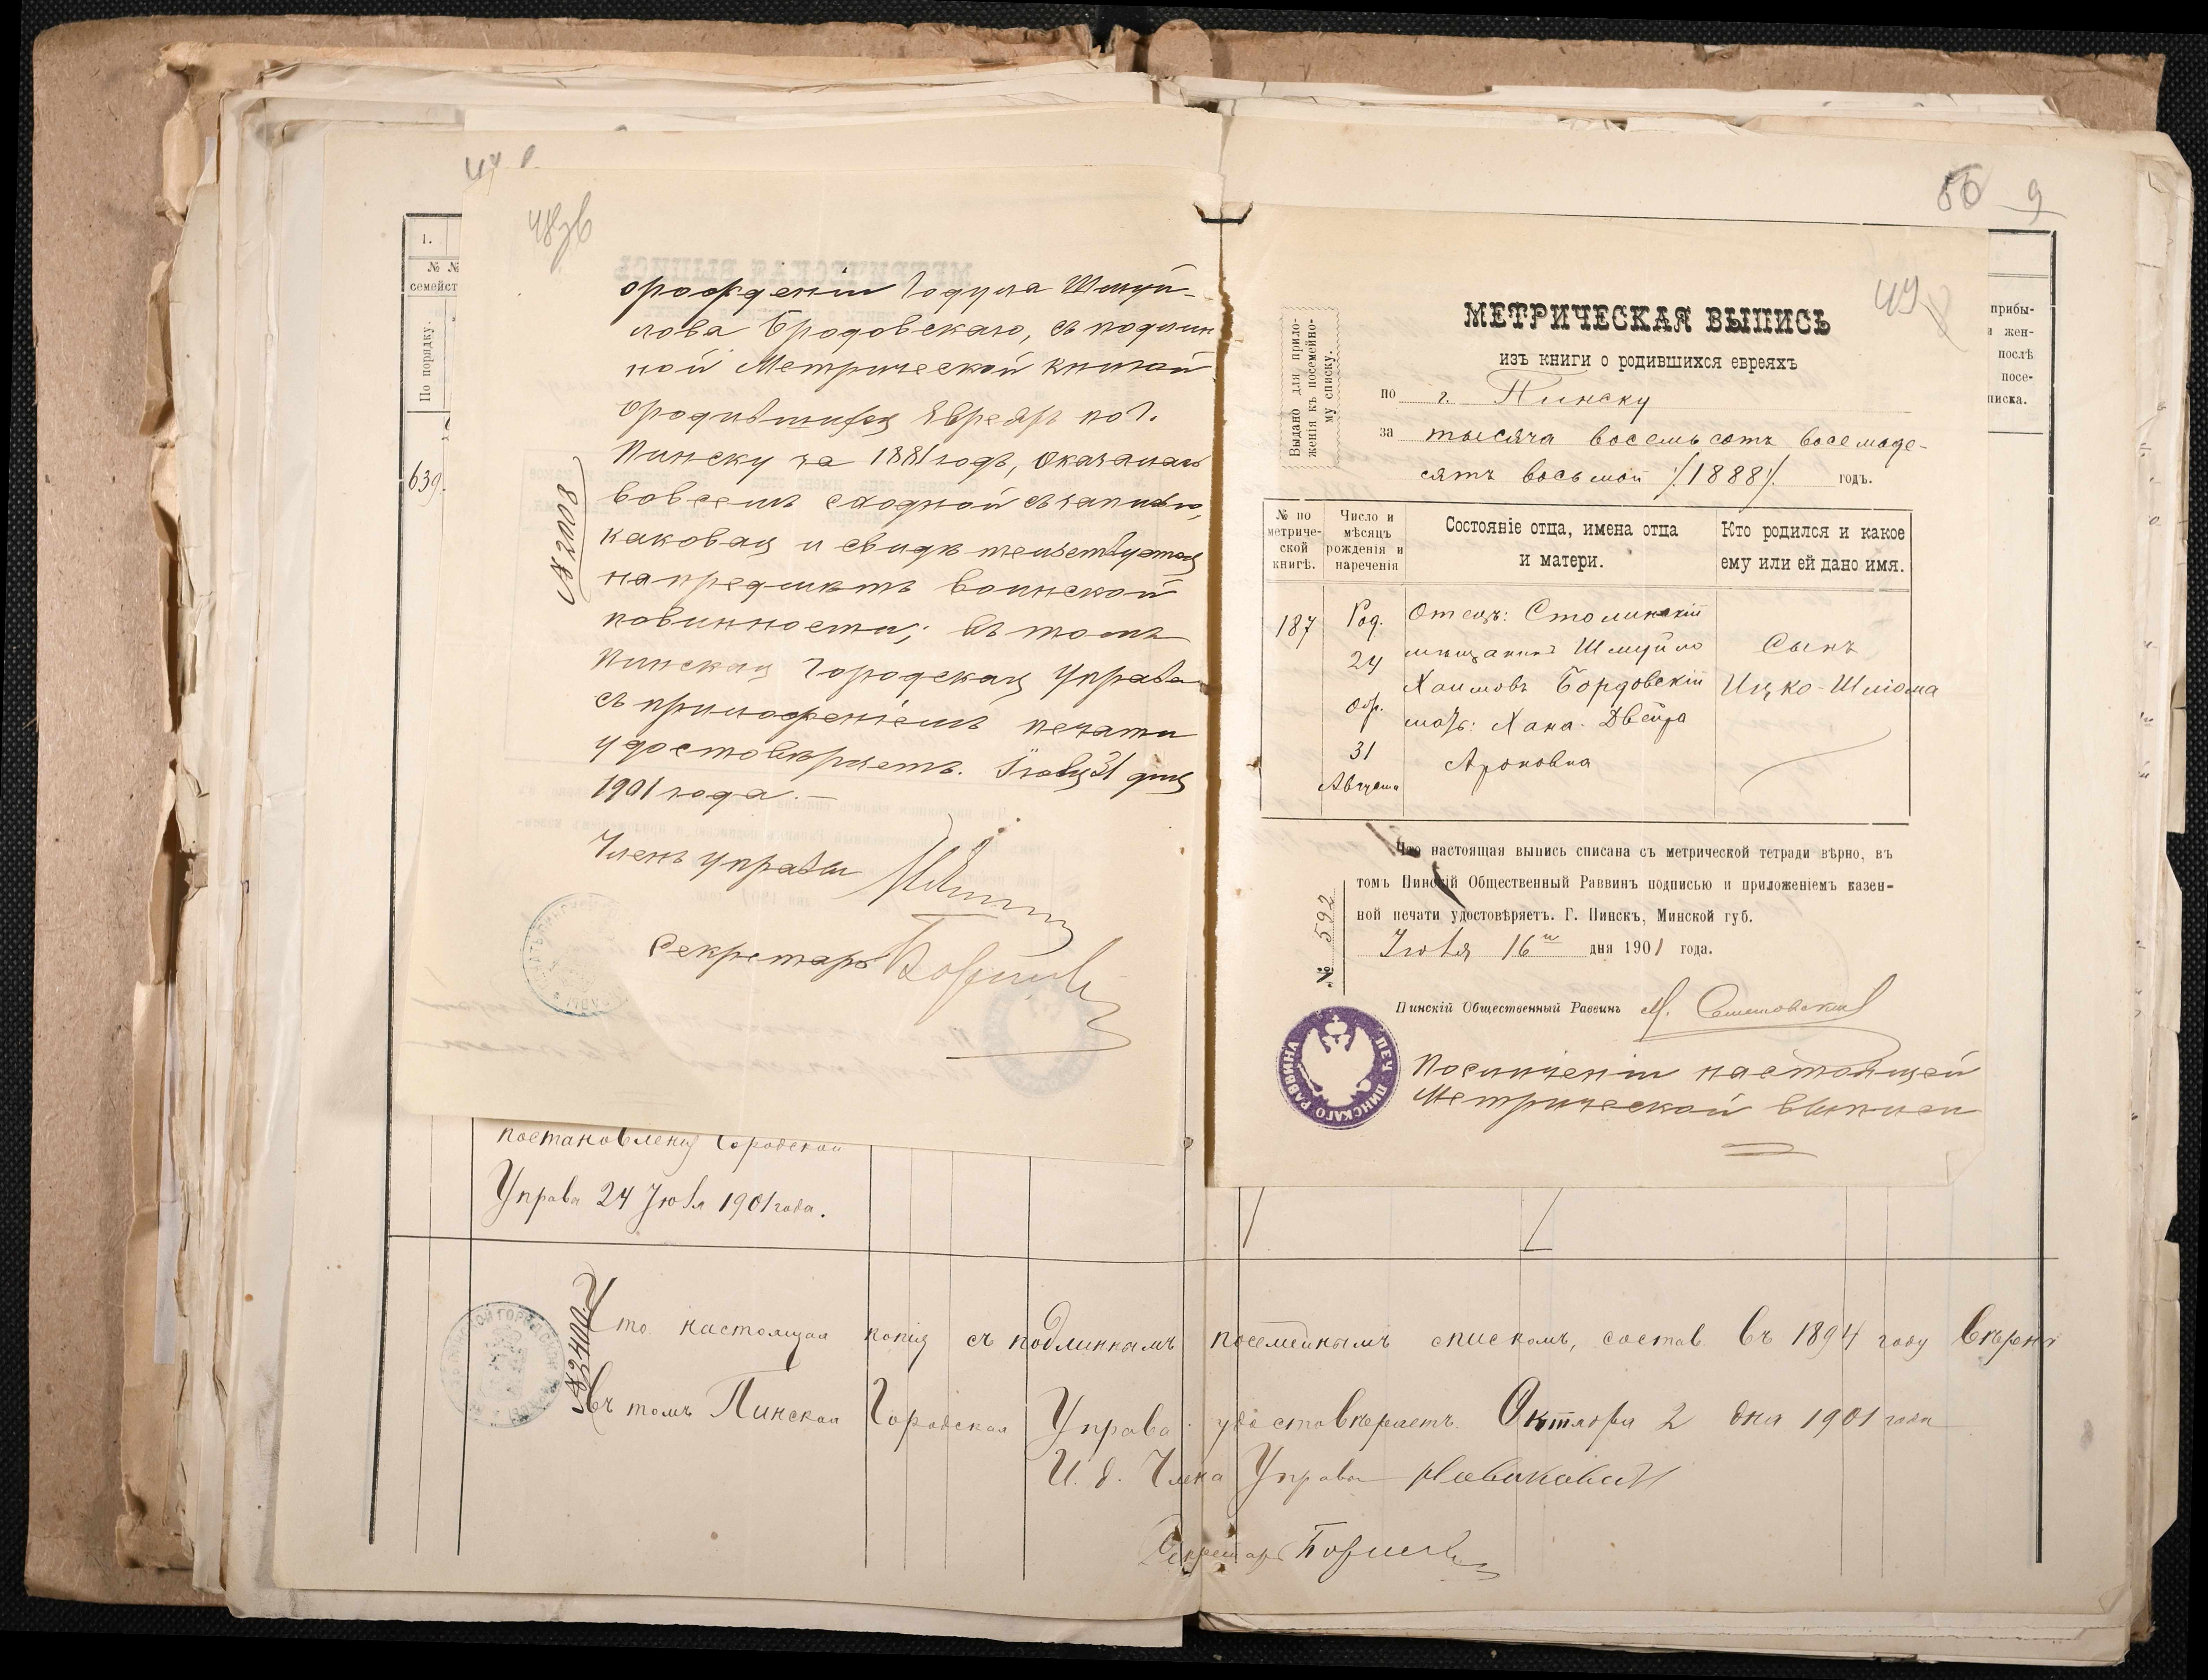 1.
№ №
семейст
По порядку.
639.
48 об
о рождении Годула Шмуй-
лова Бродовскаго, съ подлин
ной Метрической книгой
о родившихся Евреяхъ по г.
Пинску за 1881 годъ, оказалась
вовсемъ сходной съ записью,
каковая и свидѣтельствуется
на предметъ воинской
повинности; въ томъ
Пинская Городская Управа
съ приложеніемъ печати
удостовѣряетъ. Іюля 31 дня
1901 года. —
№ 2008
Членъ Управы
Секретарь
постановленію Городской
Управы 24 Іюля 1901 года.
№ 2400.
Что настоящая копія съ подлиннымъ посемейнымъ спискомъ, состав. въ 1894 году вѣрна
въ томъ Пинская Городская Управа удостовѣряетъ. Октября 2 дня 1901 года
И. д. Члена Управы
Секретарь
9
49
прибы-
жен-
послѣ
посе-
писка.
Выдано для прило-
женія къ посемейно-
му списку.
МЕТРИЧЕСКАЯ ВЫПИСЬ
изъ книги о родившихся евреяхъ
по г. Пинску
за тысяча восемьсотъ восемьде-
сятъ восьмой /1888/. годъ.
№ по метриче-ской книгѣ.
Число и мѣсяцъ рожденія и нареченія
Состояніе отца, имена отца и матери.
Кто родился и какое ему или ей дано имя.
187
Род.
24
Обр.
31
Августа
Отецъ: Столинскій
мѣщанинъ Шмуйло
Хаимовъ Бордовскій
мать: Хана-Двейра
Ароновна
Сынъ
Ицко-Шліома
Что настоящая выпись списана съ метрической тетради вѣрно, въ
томъ Пинскій Общественный Раввинъ подписью и приложеніемъ казен-
ной печати удостовѣряетъ. Г. Пинскъ, Минской губ.
Іюля 16 дня 1901 года.
№ 592
Пинскій Общественный Раввинъ
ПЕЧ. ПИНСКАГО РАВВИНА
По сличеніи настоящей
Метрической выписи